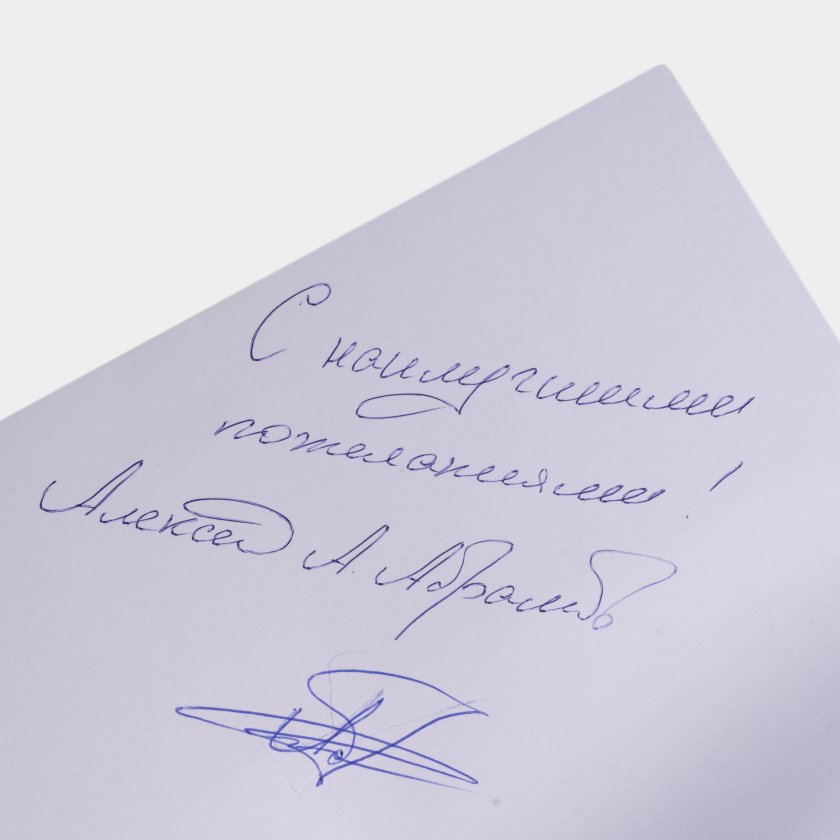 С наилучшими
пожеланиями!
Алексей А. Абрамов